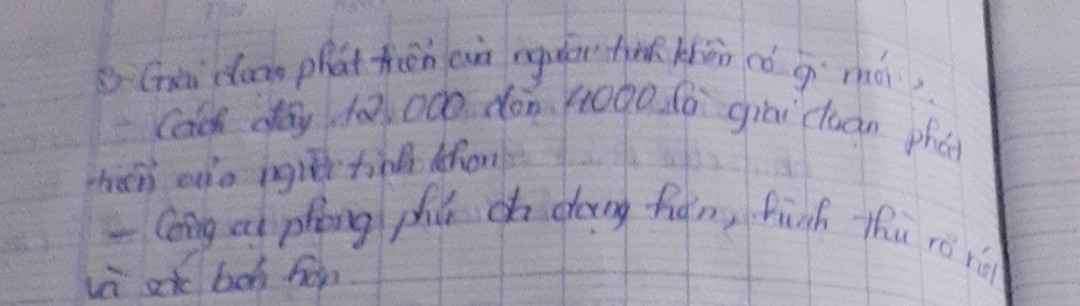 3) Giai đoạn phát triển của người tinh khôn có gì mới?
- Cách đây 12.000 đến 4000 là giai đoạn phát
triển của người tinh khôn
- Công cụ phong phú đa dạng hơn, hình thù rõ rệt
và